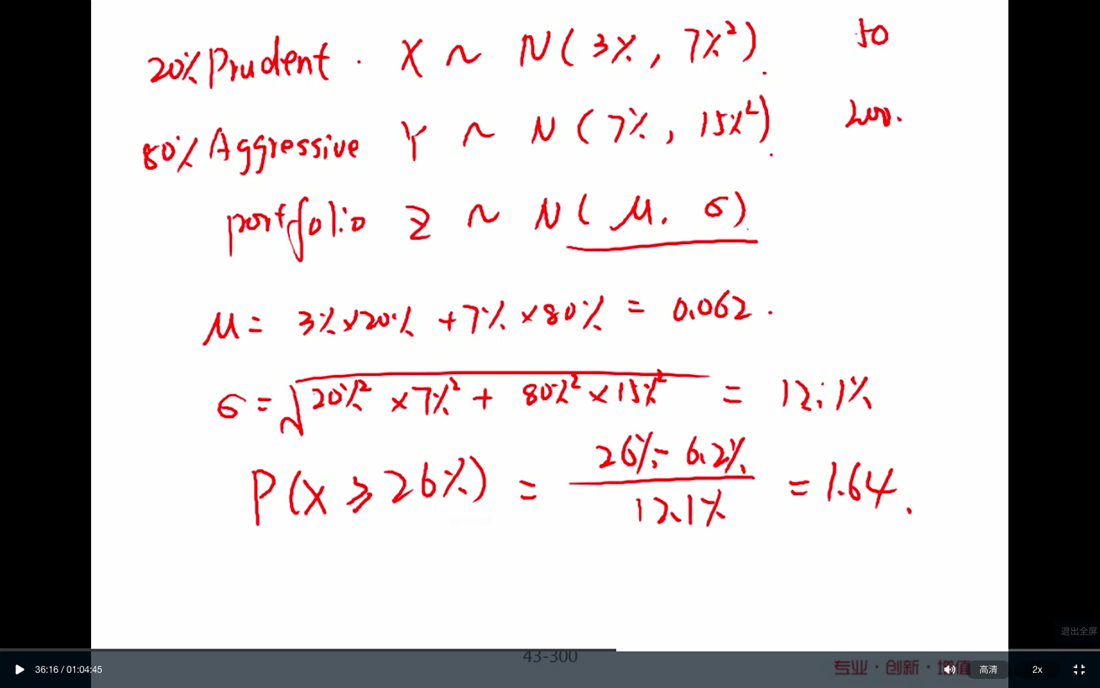 20% Prudent. X ~ N(3%, 7%²). 50
80% Aggressive Y ~ N(7%, 15%²). 200.
portfolio Z ~ N(μ. σ).
μ = 3%×20% +7%×80% = 0.062.
σ = √20%²×7%² + 80%²×15%² = 12.1%
P(X ≥ 26%) = 26%-6.2% / 12.1% = 1.64.
退出全屏
43-300
36:16 / 01:04:45
专业·创新·增值
高清
2x